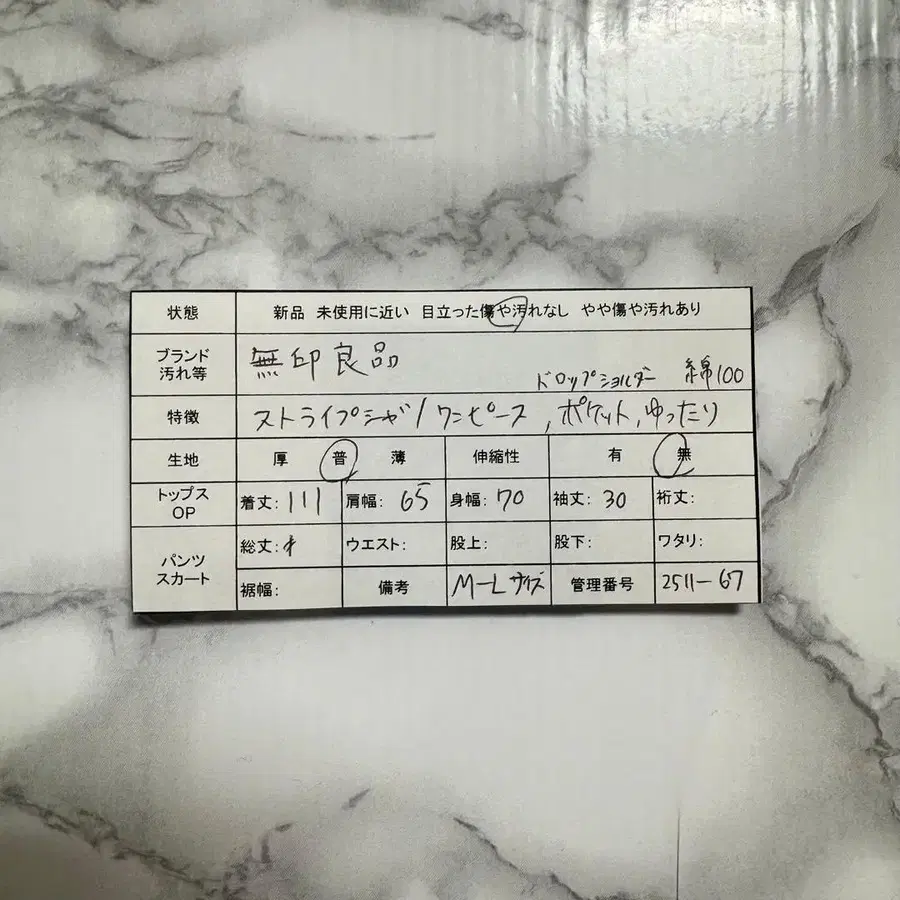 状態 新品 未使用に近い 目立った傷や汚れなし やや傷や汚れあり
ブランド 汚れ等 無印良品 ドロップショルダー 綿100
特徴 ストライプシャツワンピース, ポケット, ゆったり
生地 厚 普 薄 伸縮性 有 無
トップス OP 着丈: 111 肩幅: 65 身幅: 70 袖丈: 30 裄丈:
パンツ スカート 総丈: ウエスト: 股上: 股下: ワタリ:
裾幅: 備考 M-Lサイズ 管理番号 2511-67